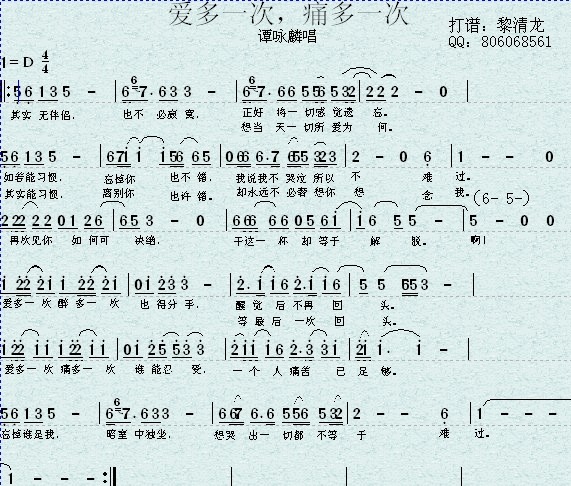 爱多一次，痛多一次
打谱：黎清龙
谭咏麟唱
QQ：806068561
1=D 4/4
5 6 1 3 5 - | 6 7. 6 3 3 - | 6 7. 6 6 5 5 5 3 2 | 2 2 2 - 0 |
其实 无伴侣， 也不 必寂 寞， 正好 将一切感 觉遗 忘。
想当 天一切所 爱为 何。
5 6 1 3 5 - | 6 7 1 1 1 5 6 6 5 | 0 6 6 6. 7 6 5 5 3 2 3 | 2 - 0 6 | 1 - - 0 |
如若能习惯， 忘掉你 也不 错， 我说我不 哭泣 所以 不 难 过。
其实能习惯， 离别你 也许 错。 却永远不 必奢 想你 想 念 我。
(6- 5-)
2 2 2 2 2 0 1 2 6 | 6 5 3 - 0 | 6 6 6 6 6 0 5 6 1 | 1 6 5 5 - | 5 - - 0 |
再次见你 如 何可 决绝， 干这一 杯 却 等于 解 脱。 啊！
1 2 2 2 1 1 2 2 2 1 | 0 1 2 3 3 - | 2. 1 1 6 2. 1 1 6 | 5 5 6 5 3 |
爱多一 次 醉 多一 次 也 得分 手， 醒 觉 后 不再 回 头。
等 最后 一次 回 头。
1 2 2 1 1 1 2 2 1 1 | 0 1 2 5 5 3 3 | 2 1 1 1 6 2. 3 3 1 | 2 1 1. 1 - |
爱多一次 痛多一 次 谁 能忍 受， 一个 人 痛苦 已 足 够。
5 6 1 3 5 - | 6 7. 6 3 3 - | 6 6 7 6. 6 5 5 6 5 3 2 | 2 - - 6 | 1 - -
忘掉谁是我， 暗室 中独坐， 想哭 出 一切都 不等 于 难 过。
1 - - :|